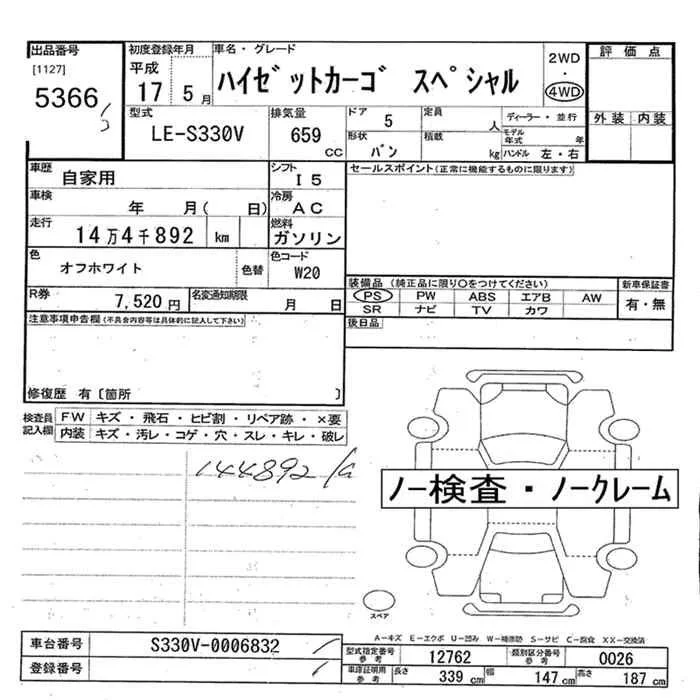 出品番号
[1127]
5366
初度登録年月
平成
17 5月
車名・グレード
ハイゼットカーゴ スペシャル
2WD
・
4WD
評価点
外装 内装
型式
LE-S330V
排気量
659
CC
ドア
5
定員
人
形状
バン
積載
kg
ディーラー・並行
モデル年式 年
ハンドル 左・右
車歴
自家用
シフト
I5
車検
年 月( 日)
冷房
AC
走行
14万4千892 km
燃料
ガソリン
色
オフホワイト
色替
色コード
W20
R券
7,520円
名変通知期限
月 日
セールスポイント(正常に機能するものに限ります)
装備品 (純正品に限り○をつけてください)
PS PW ABS エアB AW
SR ナビ TV カワ
新車保証書
有・無
後日品
注意事項申告欄(不具合内容等は具体的に記入して下さい)
修復歴 有〔箇所 〕
検査員記入欄
FW キズ・飛石・ヒビ割・リペア跡・×要
内装 キズ・汚レ・コゲ・穴・スレ・キレ・破レ
144892
ノー検査・ノークレーム
スペア
A-キズ E-エクボ U-凹み W-補修跡 S-サビ C-腐食 XX-交換済
車台番号
S330V-0006832
登録番号
型式指定番号参考
12762
類別区分番号参考
0026
車庫証明用参考
長さ 339cm 幅 147cm 高さ 187cm